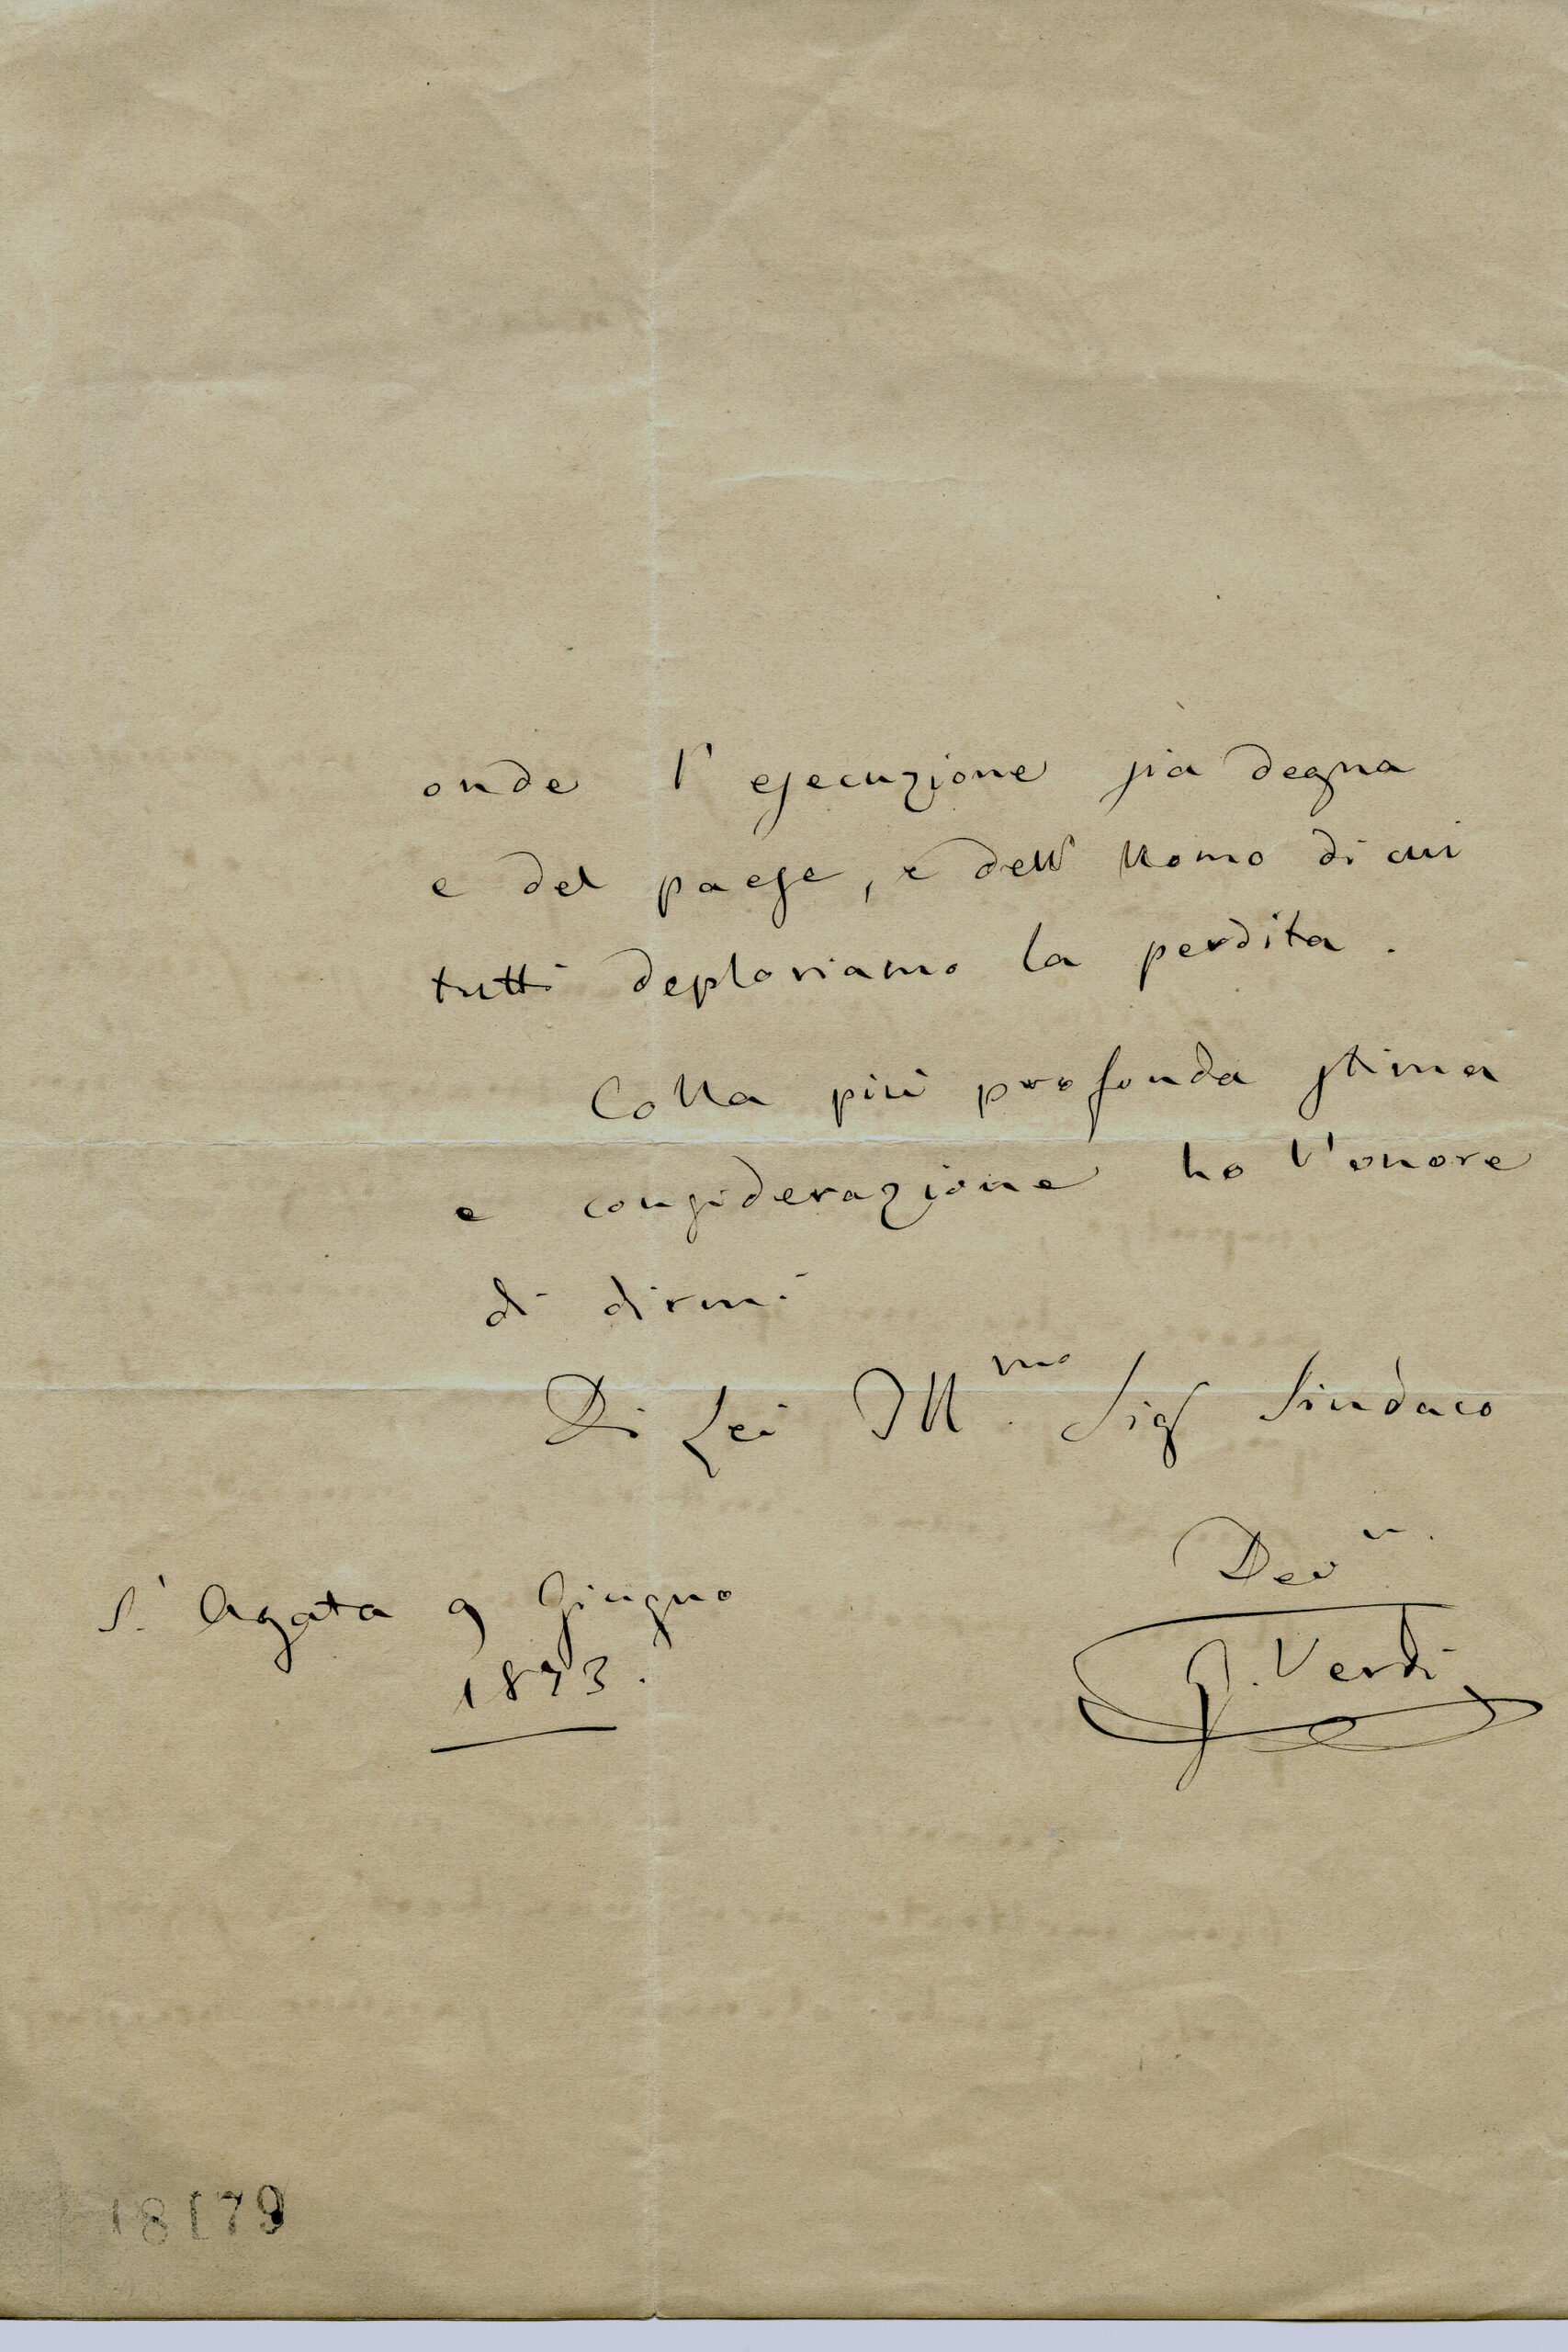 onde l'esecuzione sia degna
e del paese, e dell'Uomo di cui
tutti deploriamo la perdita.
Colla più profonda stima
e considerazione ho l'onore
di dirmi
Di Lei Ill.mo Sig Sindaco
Dev
S. Agata 9 Giugno
1873.
G. Verdi
18179